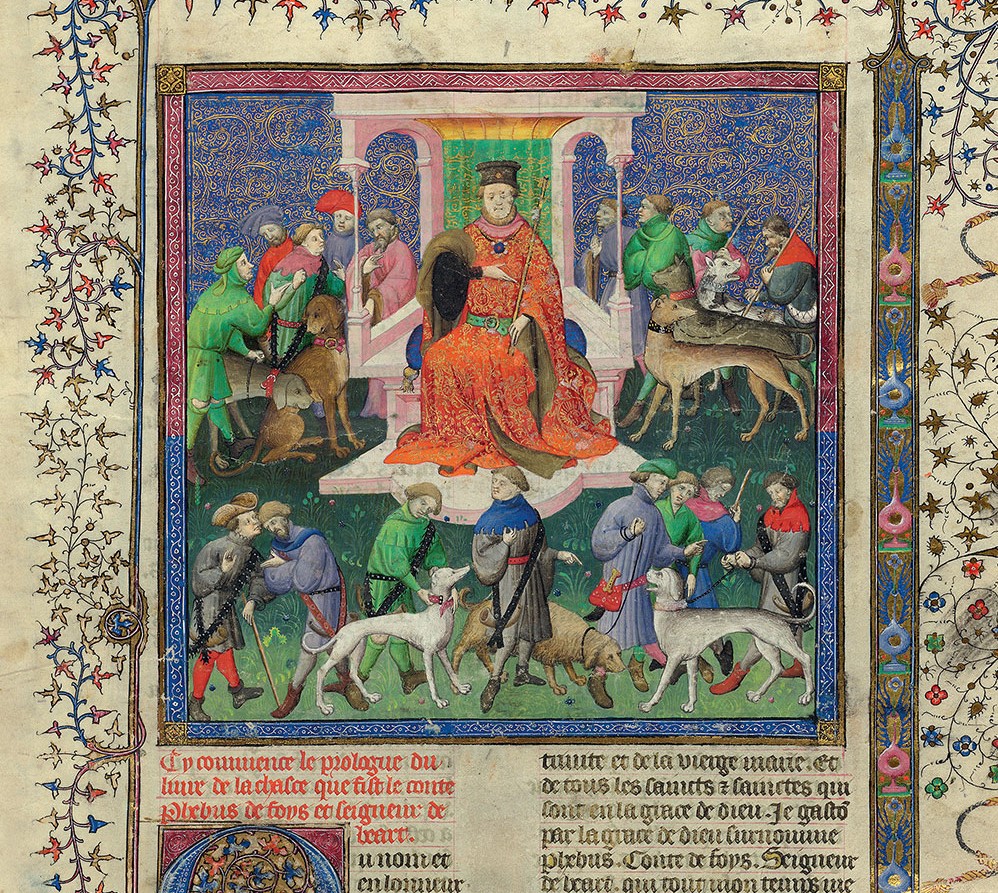 Cy commence le prologue du
liure de la chasce que fist le conte
Phebus de foys et seigneur de
beart.
u nom et
en lonneur
trinite et de la vierge marie. Et
de tous les saincts & sainctes qui
sont en la grace de dieu. Je gastõ
par la grace de dieu surnomme
phebus. Conte de foys. Seigneur
de beart. qui tout mon temps me